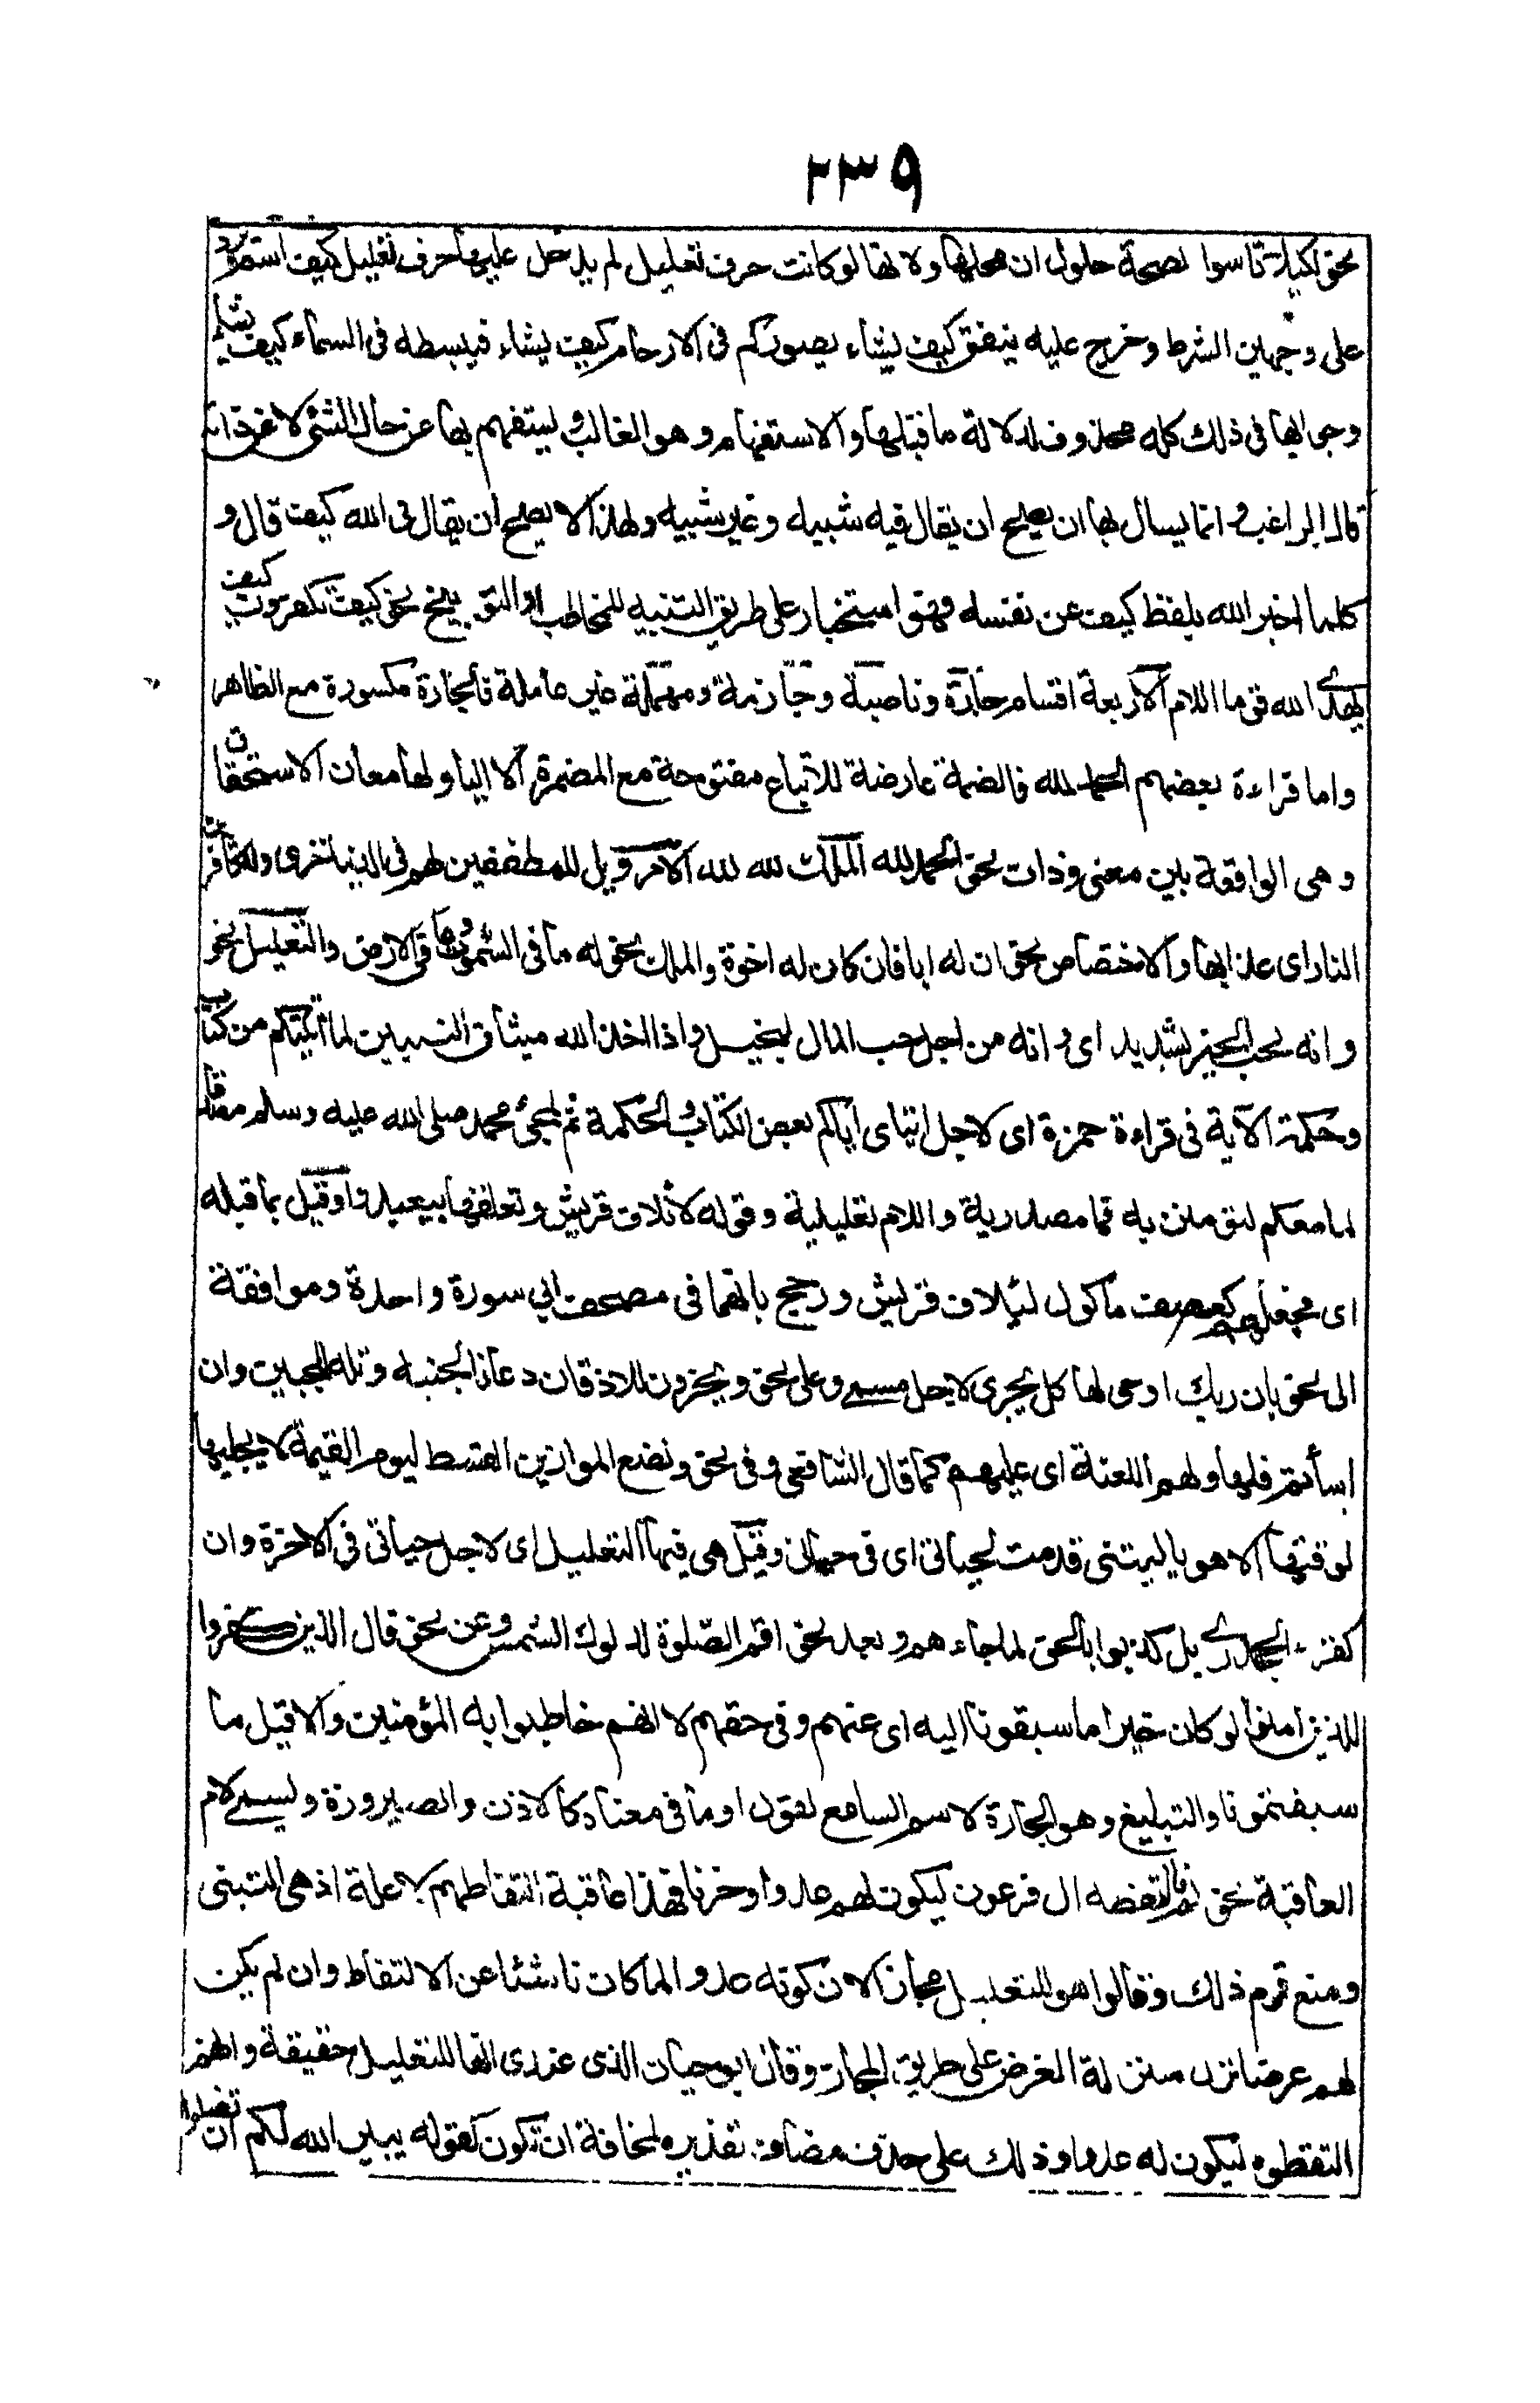 ٢٣٩
نحو لكيلا تاسوا لصحة حلول ان محلها ولانها لو كانت حرف تعليل لم يدخل عليها حرف تعليل كيف اسم يرد
على وجهين الشرط وخرج عليه ينفق كيف يشاء يصوركم في الارحام كيف يشاء فيبسطه في السماء كيف يشاء
وجوابها في ذلك كله محذوف لدلالة ما قبلها والاستفهام وهو الغالب و يستفهم بها عن حال الشئ لا عن ذاته
قال الراغب و انما يسال بها ان يصح ان يقال فيه شبيه وغير شبيه ولهذا لا يصح ان يقال في الله كيف قال و
كلما اخبر الله بلفظ كيف عن نفسه فهو استخبار على طريق التنبيه للمخاطب او التوبيخ نحو كيف تكفرون كيف
يهدى الله قوما اللام اربعة اقسام جارة وناصبة وجازمة ومهملة غير عاملة فالجارة مكسورة مع الظاهر
واما قراءة بعضهم الحمد لله فالضمة عارضة للاتباع مفتوحة مع المضمر الا اليا ولها معان الاستحقاق
وهي الواقعة بين معنى وذات نحو الحمد لله الملك لله لله الامر ويل للمطففين لهم في الدنيا خزى وللكافرين
النار اى عذابها والاختصاص نحو ان له ابا فان كان له اخوة والملك نحو له ما في السموت وما في الارض والتعليل نحو
وانه لحب الخير لشديد اى وانه من اجل حب المال لبخيل واذا اخذ الله ميثاق النبيين لما اتيتكم من كتاب
وحكمة الآية في قراءة حمزة اى لاجل ايتاى اياكم بعض الكتاب و الحكمة ثم لمجئ محمد صلى الله عليه وسلم مصدقا
لما معكم لتؤمنن به فما مصدرية واللام تعليلية وقوله لايلاف قريش وتعلقها بيعبدوا وقيل بما قبله
اى فجعلهم كعصف ماكول لئيلاف قريش ورجح بانهما في مصحف ابي سورة واحدة وموافقة
الى نحو بان ربك اوحى لها كل يجرى لاجل مسمى وعلى نحو ويخرون للاذقان دعانا لجنبه وتله للجبين وان
اسأتم فلها ولهم اللعنة اى عليهم كما قال الشافعي وفي نحو ونضع الموازين القسط ليوم القيمة لا يجليها
لوقتها الا هو ياليتنى قدمت لحياتى اى في حياتى وقيل هي فيها التعليل اى لاجل حياتى في الاخرة وان
كقراءة الجحدرى بل كذبوا بالحق لما جاءهم وبعد نحو اقم الصلوة لدلوك الشمس وعن نحو قال الذين كفروا
للذين امنوا لو كان خيرا ما سبقونا اليه اى عنهم وفى حقهم لا انهم خاطبوا به المؤمنين والا قيل ما
سبقتمونا والتبليغ وهو الجارة لاسم السامع لقول او ما في معناه كالاذن والصيرورة وليسمى لام
العاقبة نحو فالتقطه ال فرعون ليكون لهم عدوا وحزنا فهذا عاقبة التقاطهم لا علة اذ هى التبنى
ومنع قوم ذلك وقالوا هو للتعليل مجازا لان كونه عدوا لما كان ناشئا عن الالتقاط وان لم يكن
لهم غرضا نزل منزلة الغرض على طريق المجاز وقال ابو حيان الذى عندى انها للتعليل حقيقة وانهم
التقطوه ليكون له عدوا وذلك على حذف مضاف تقديره لمخافة ان تكون كقوله يبين الله لكم ان تضلوا